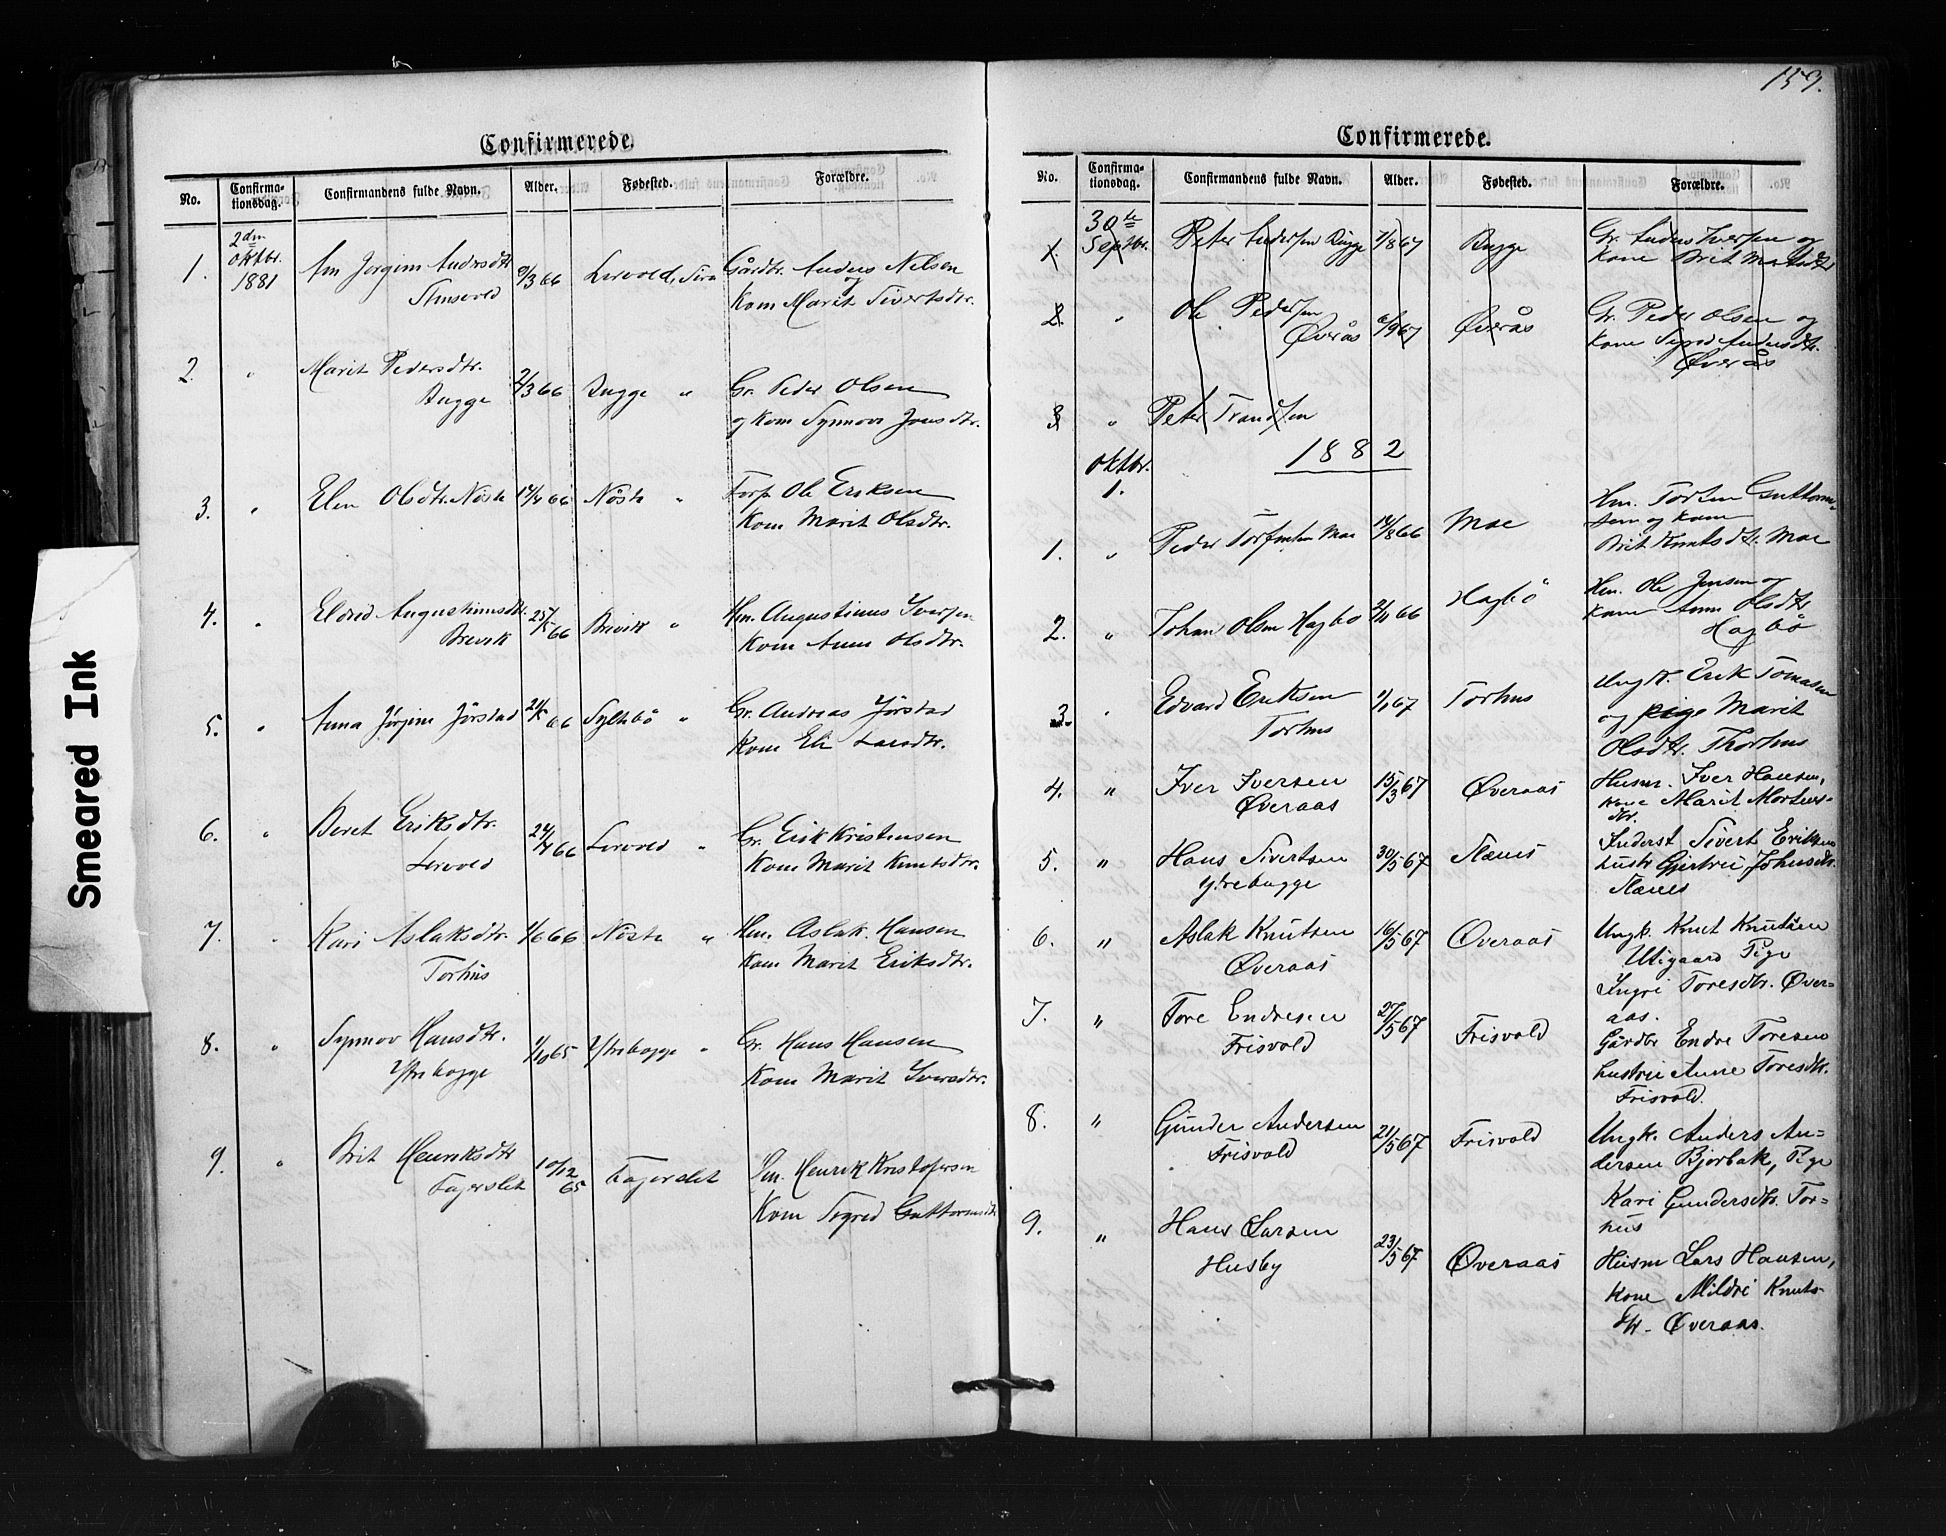 Smeared Ink
Confirmerede.
No. Confirma-tionsdag. Confirmandens fulde Navn. Alder. Fødested. Forældre.
2den Oktbr. 1881
1. Ane Jørgine Andersdtr 9/3 66 Lervold, Sira Gårdbr. Anders Nelsen og
Kone Marit Sivertsdtr.
2. " Marit Pedersdtr. 2/3 66 Bugge " Gr. Peder Olsen
Bugge og Kone Synnøv Jonsdtr.
3. " Elen Olsdtr. Nøste 14/4 66 Nöste " Forp. Ole Eriksen
Kone Marit Olsdtr.
4. " Eldrid Augustinusdtr. 25/5 66 Brevik " Hm. Augustinus Iversen
Brevik Kone Anne Olsdtr.
5. " Anna Jørgine Jörstad 21/5 66 Syltebö " Gr. Andreas Jörstad
Kone Eli Larsdtr.
6. " Beret Eriksdtr. 24/4 66 Lervold " Gr. Erik Kristensen
Lervold Kone Marit Knutsdtr.
7. " Kari Aslaksdtr. 1/6 66 Nöste " Hm. Aslak Hansen
Torhus Kone Marit Eriksdtr.
8. " Synnøv Hansdtr. 1/10 65 Ytrebugge " Gr. Hans Hansen
Ytrebugge Kone Marit Iversdtr.
9. " Brit Henriksdtr 10/12 65 Fagerslet Hm. Henrik Kristofersen
Fagerslet Kone Sigred Guttormsdtr
159.
Confirmerede.
No. Confirma-tionsdag. Confirmandens fulde Navn. Alder. Fødested. Forældre.
30te Septbr.
1. Peter Andersen Bugge 7/8 67 Bugge Gr. Anders Iversen og
Kone Brit Matsdtr
2. " Ole Pedersen 6/9 67 Øverås Gr. Peder Olsen og
Øverås Kone Sigrid Andersdtr.
Øverås
3. " Peter Trandsen
1882
Oktbr. 1.
1. " Peder Torstensen Moe 14/8 66 Moe Hm. Torsten Guttorm-
sen og Kone
Brit Knutsdtr. Moe
2. " Johan Olsen Hagbö 2/11 66 Hagbö Hm. Ole Jensen og
Kone Anne Olsdtr
Hagbö
3. " Edvard Eriksen 1/1 67 Torhus Ungk. Erik Tomasen
Torhus og pige Marit
Olsdtr. Thorhus
4. " Iver Iversen 15/3 67 Øveraas Husm. Iver Hansen,
Øveraas Kone Marit Mortens-
dtr.
5. " Hans Sivertsen 30/5 67 Stænes Inderst Sivert Eriksen
Ytrebugge hustr. Gjertrü Johnsdtr.
Stænes
6. " Aslak Knutsen 16/5 67 Øveraas Ungk. Knut Knutsen
Øveraas Utigaard Pige
Ingri Toresdtr. Øver-
aas.
7. " Tore Endresen 27/5 67 Frisvold Gårdbr Endre Toresen
Frisvold hustrü Anne Toresdtr.
Frisvold.
8. " Günder Andersen 21/5 67 Frisvold Ungk. Anders An-
Frisvold dersen Bjørbak, Pige
Kari Gundersdtr. Tor-
hus
9. " Hans Larsen 23/5 67 Øveraas Husm Lars Hansen,
Husby Kone Mildri Knuts-
dtr. Øveraas.